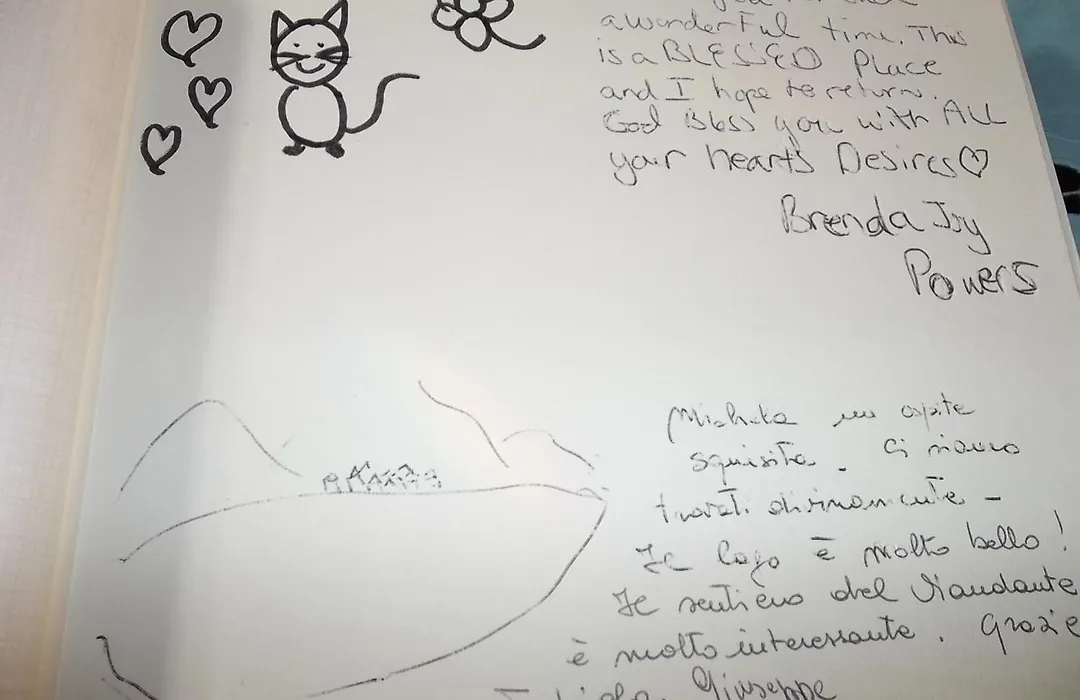 a wonderful time. This
is a BLESSED Place
and I hope to return.
God Bless you with ALL
your hearts Desires♡
Brenda Joy
Powers
Michela un ospite
squisita. Ci siamo
trovati divinamente -
Il lago è molto bello!
Il sentiero del Viandante
è molto interessante. Grazie
Giuseppe